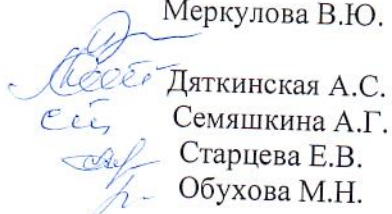 Меркулова В.Ю.
Дяткинская А.С.
Семяшкина А.Г.
Старцева Е.В.
Обухова М.Н.